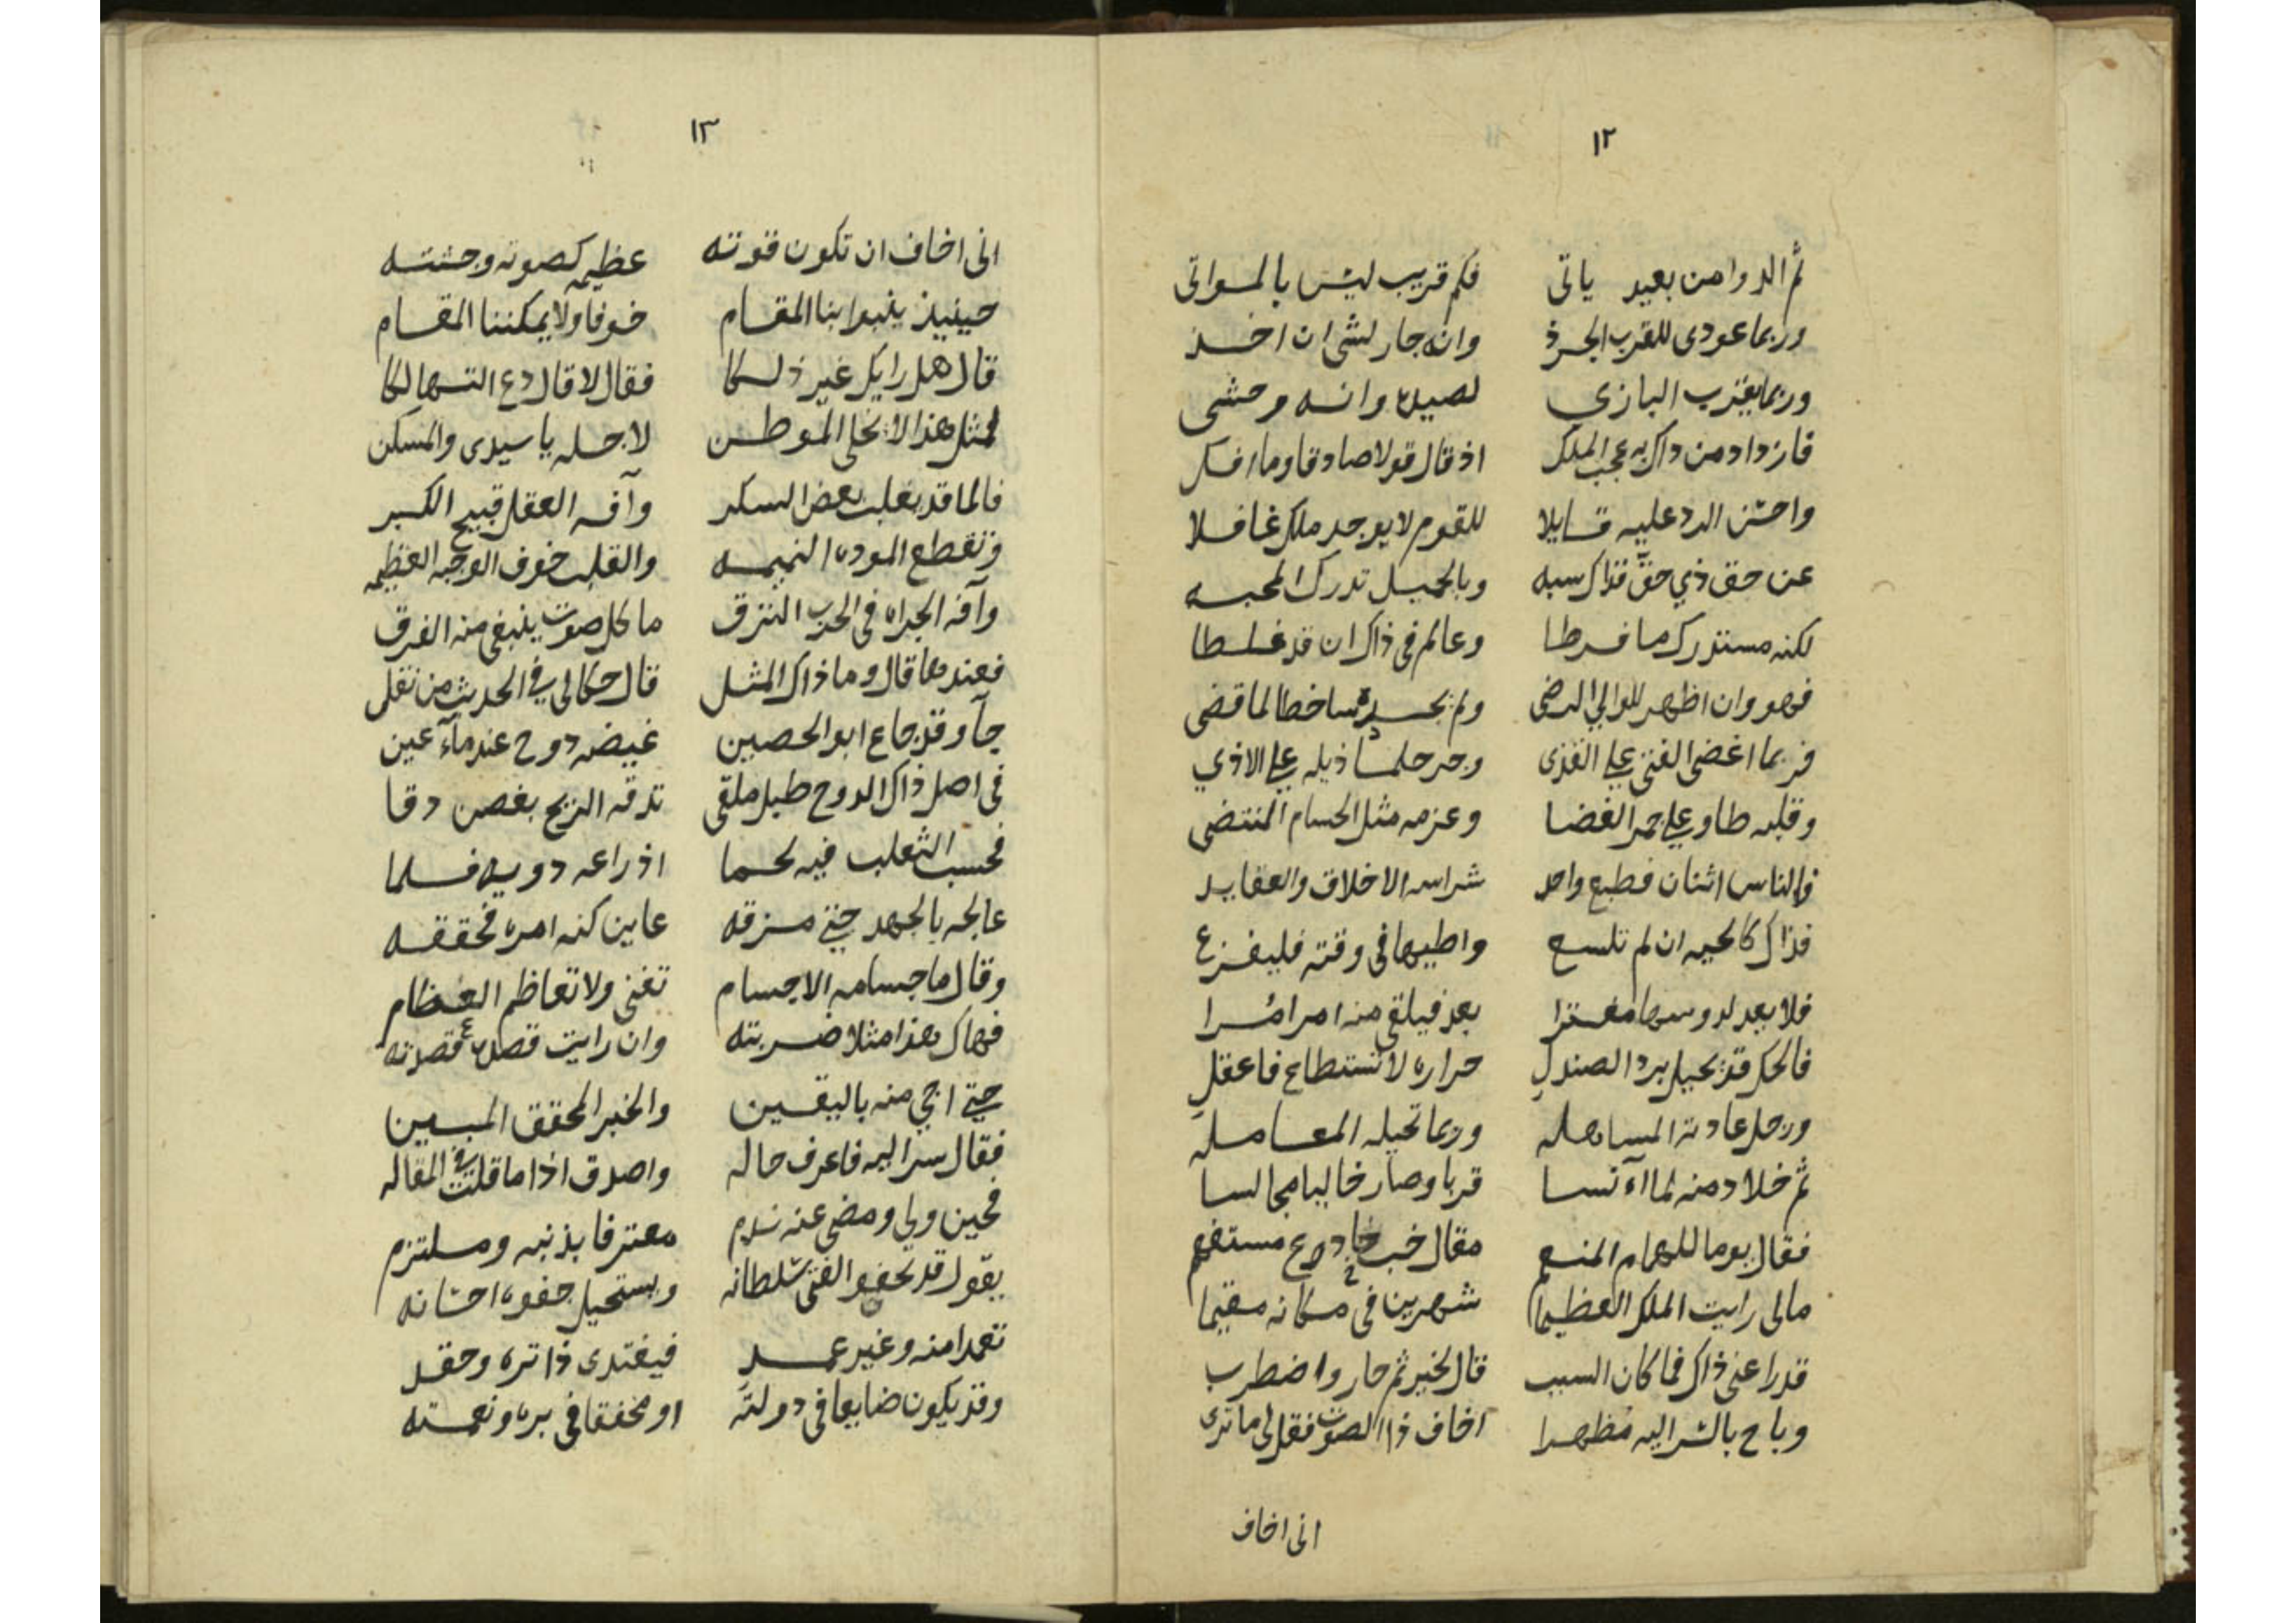 ١٢
ثم الدوا من بعيد ياتى فكم قريب ليس بالمواتى
وربما عودى للقرب الجرذ وانه جار لشى ان اخذ
وربما يقترب البازي لصيده وانه وحشى
فازداد من ذاك به عجب الملك اذ قال قولا صادقا وما افك
واحسن الرد عليه قايلا للقوم لا يوجد ملك غافلا
عن حق ذي حق فذاك سبه وبالجميل تدرك المحبه
لكنه مستدرك ما فرطا وعالم فى ذاك ان قد غلطا
فهو وان اظهر للوالي الرضى ولم ساخطا لما قضى
فربما اغضى الفتى على القذى وجر حلما ذيله على الاذي
وقلبه طاو على جمر الغضا وعزمه مثل الحسام المنتضى
والناس اثنان فطبع واحد شراسه الاخلاق والعقايد
فذاك كالحيه ان لم تلسع واطيها فى وقته فليفزع
فلا يعد لدوسها مغترا بعد فيلقى منه امرا مرا
فالحك قد يحيل برد الصندل حراره لا تستطاع فاعقل
ورجل عادته المساهله وربما تحيله المعامله
ثم خلا دمنه لما آنسا قربا وصار خاليا مجالسا
فقال يوما للهمام المنعم مقال خب خادع مستفهم
مالى رايت الملك العظيما شهرين فى مكانه مقيما
قد راعنى ذاك فما كان السبب قال لخير ثم حار واضطرب
وباح بالسر اليه مظهرا اخاف ذا الصوت فقل لى ما ترى
انى اخاف
١٣
انى اخاف ان تكون قوته عظيمه كصوته وجثته
حينيذ ينبوا بنا المقام خوفا ولا يمكننا المقام
قال هل رايك غير ذلكا فقال لا قال دع التهالكا
لمثل هذا لا نخلى الموطن لاجله يا سيدى والمسكن
فالما قد يغلب بعض السكر وآفه العقل قبيح الكبر
وتقطع الموده النميمه والقلب خوف الوجبه العظيمه
وآفه الجراه فى الحرب النزق ما كل صوت ينبغى منه الفرق
فعندها قال وما ذاك المثل قال حكا لى في الحديث من نقل
جآ وقد جاع ابو الحصين غيضه دوح عند مآء عين
فى اصل ذاك الدوح طبل ملقى تدقه الريح بغصن دقا
فحسب الثعلب فيه لحما اذ راعه دويه فلما
عالجه بالجهد حتى مزقه عاين كنه امره فحققه
وقال ما جسامه الاجسام تغنى ولا تعاظم العظام
فهاك هذا مثلا ضربته وان رايت قصده قصدته
حتى اجي منه باليقين والخبر المحقق المبين
فقال سر اليه فاعرف حاله واصدق اذا ما قلت في المقاله
فحين ولى ومضى عنه ندم معترفا بذنبه وملتزم
يقول قد يجفو الفتى سلطانه ويستحيل جفوه احسانه
تعمدا منه وغير عمد فيغتدى ذا تره وحقد
وقد يكون ضايعا فى دولته او مخفقا فى بره ونعمته